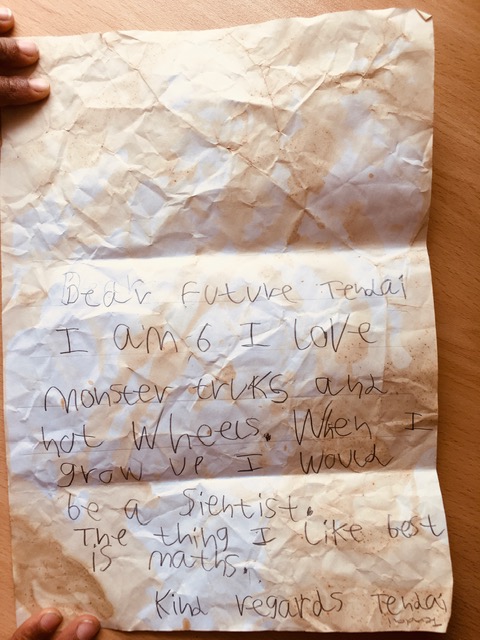 Dear Future Tendai
I am 6 I love
monster truks and
hot Wheels. When I
grow up I would
be a Sientist.
The thing I like best
is maths.
Kind regards Tendai
Tendai